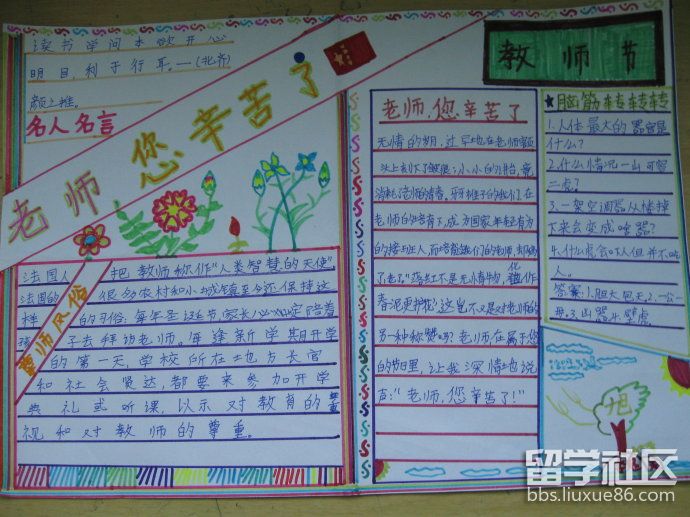 读书学问本欲开心
明目,利于行耳。—(北齐)
颜之推。
名人名言
老师您辛苦了
教师节
尊师风俗
法国人把教师称作"人类智慧的天使"
法国的很多农村和小城镇至今还保持这
样的习俗:每年圣诞节家长必定陪着
孩子去拜访老师。每逢新学期开学
的第一天,学校所在地方长官
和社会贤达,都要来参加开学
典礼或听课,以示对教育的重
视和对教师的尊重。
老师,您辛苦了
无情的
过早地在老师
头上刻下了皱痕;小小的
消耗
老师的青春。
老师的培育下,成为国家年轻有为
的接班人,而培育
们的老师,却
了老了。"落红不是无情物,化作
春泥更护花"这岂不又是对老师的
另一种称赞吗?老师在属于您
的节日里,让我深情地说
声:"老师,您辛苦了!"
脑筋转转转
1.人体最大的器官是
什么?
2.什么情况一山可容
二虎?
3.一架空调器从楼掉
下来会变成啥器?
4.什么虎会吓人但并不吃
人。
答案:1.胆大包天2.一公一
母3.凶器4.壁虎
旭
留学社区
bbs.liuxue86.com